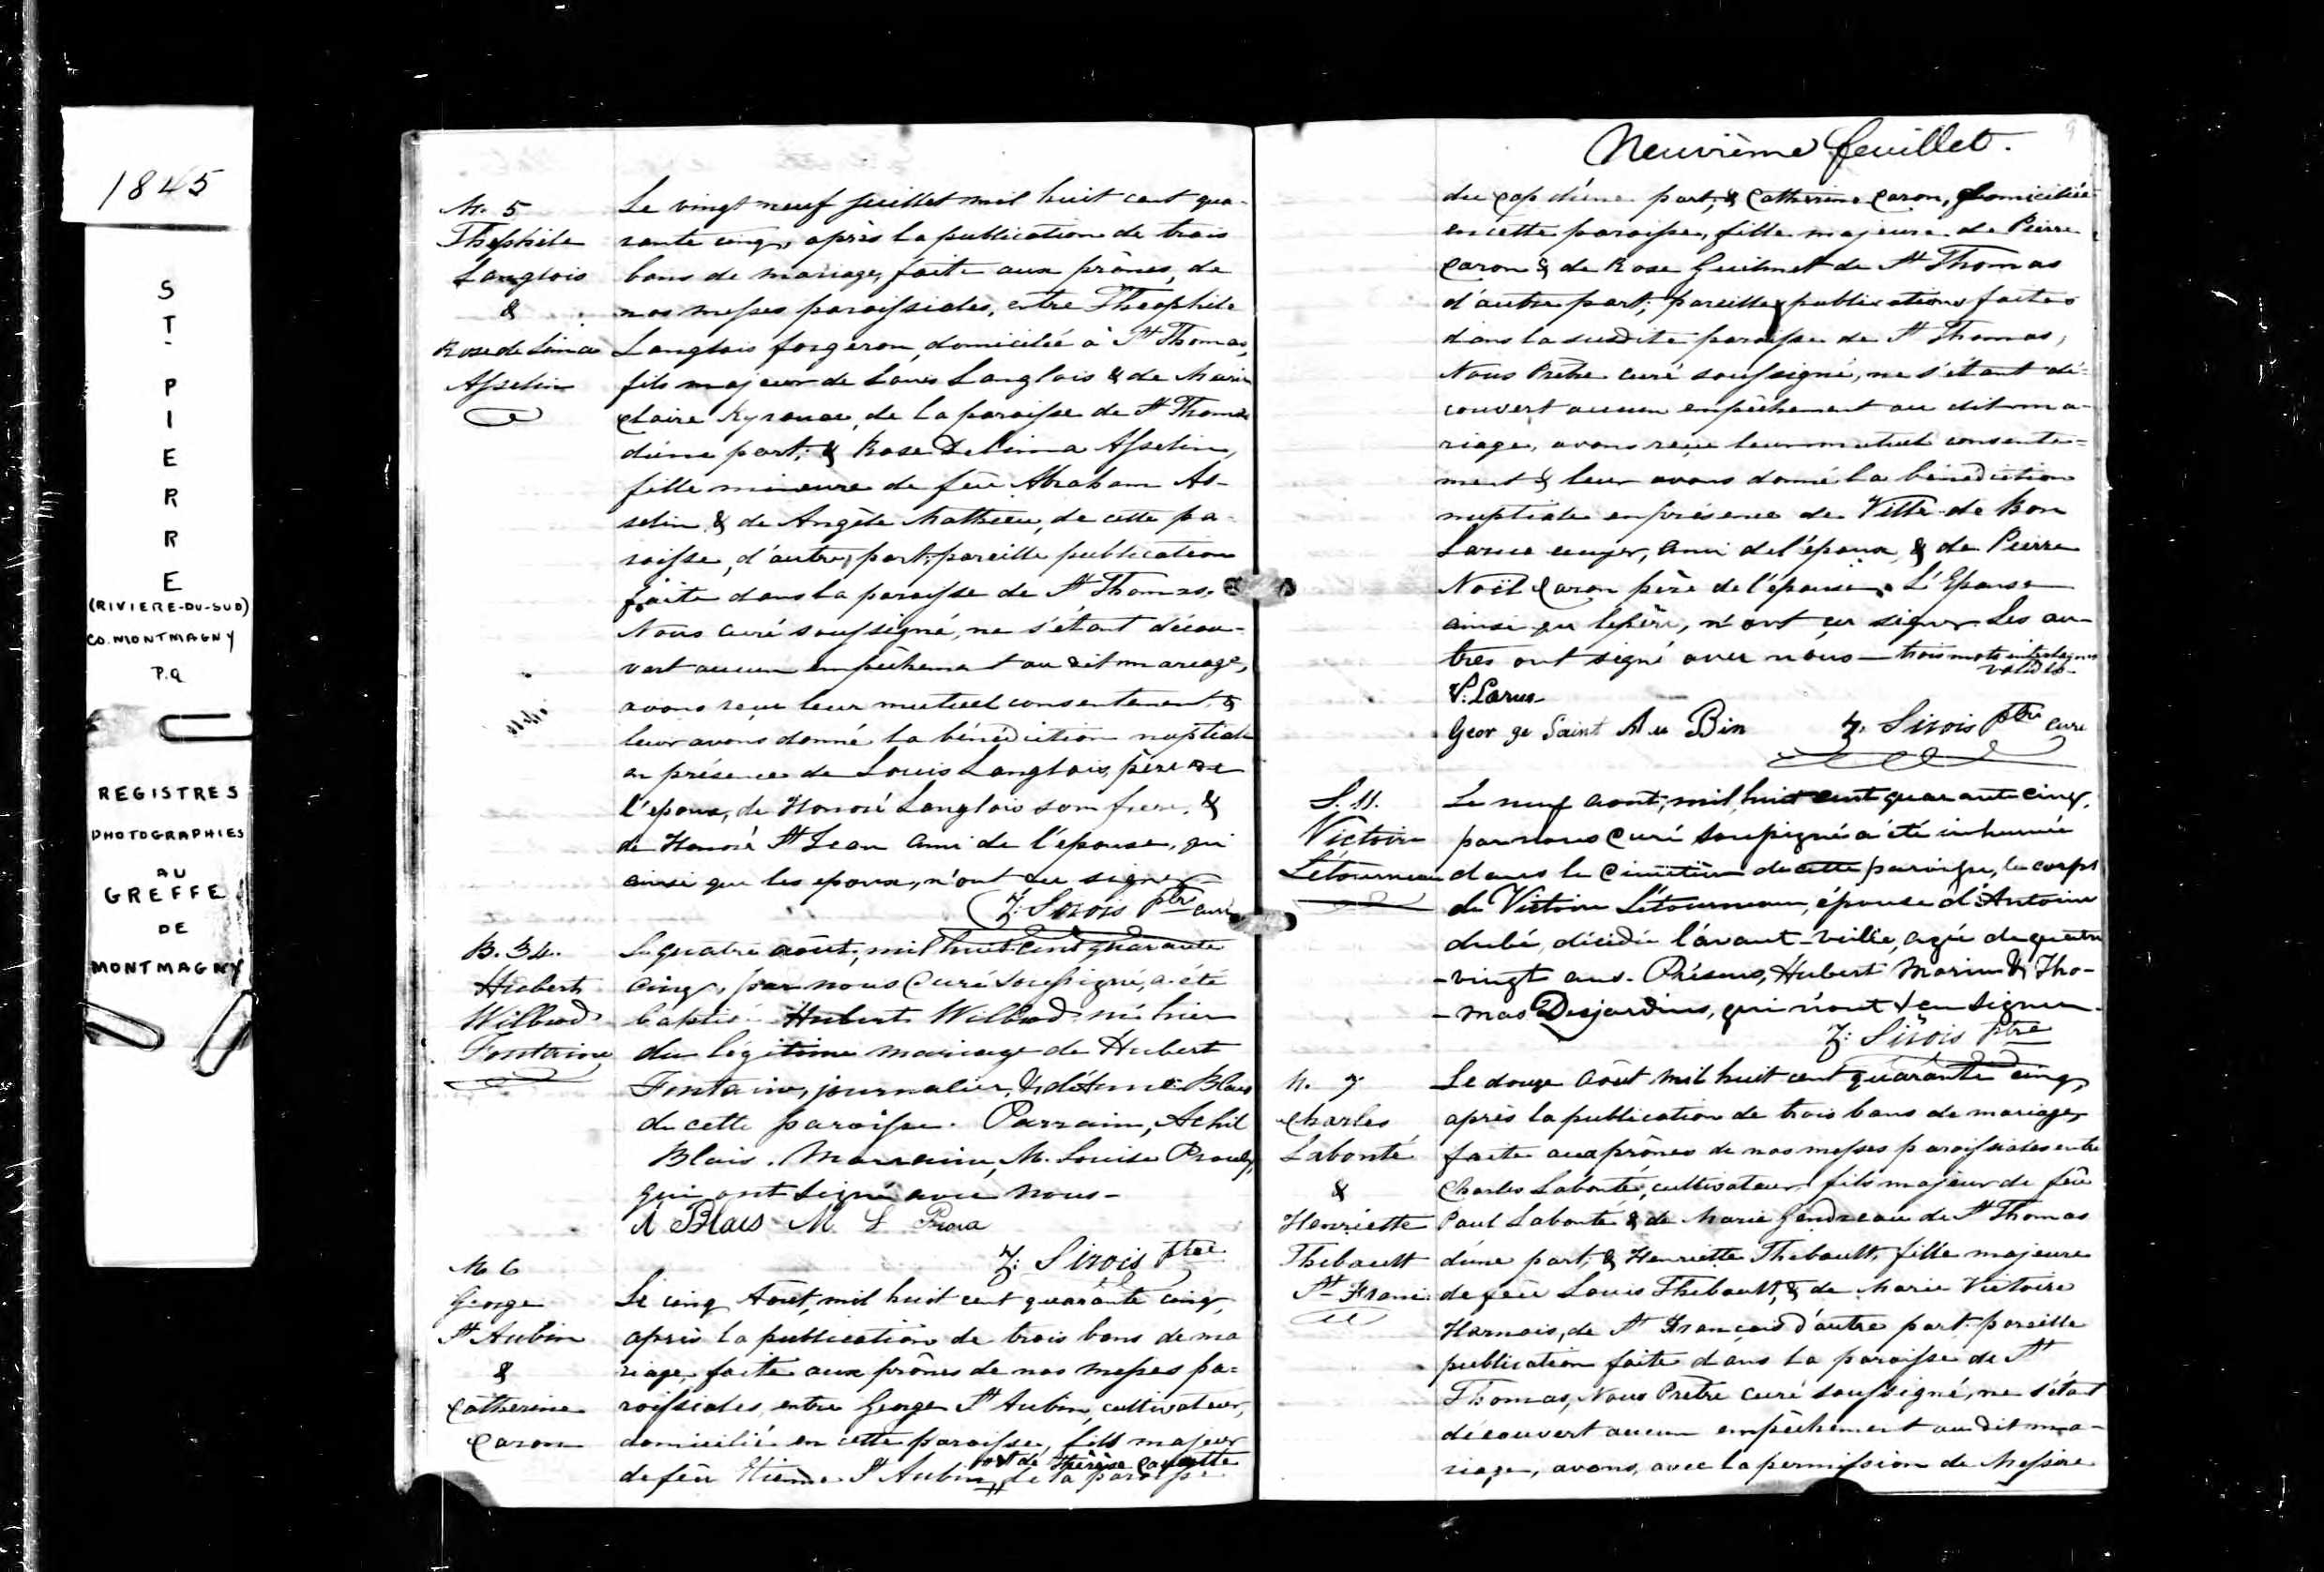 1845
ST-PIERRE
(RIVIERE-DU-SUD)
CO. MONTMAGNY
P.Q
REGISTRES
PHOTOGRAPHIES
AU
GREFFE
DE
MONTMAGNY
M. 5
Théophile
Langlois
&
Rose de Lima
Asselin
Le vingt neuf juillet mil huit cent qua-
rante cinq, après la publication de trois
bans de mariage, faite aux prônes, de
nos messes paroissiales, entre Théophile
Langlois forgeron, domicilée à St Thomas,
fils majeur de Louis Langlois & de Marie
Claire Kyrouac, de la paroisse de St Thomas
d'une part; & Rose Delima Asselin,
fille mineure de feu Abraham As-
selin & de Angèle Mathieu, de cette pa-
roisse, d'autre part; pareille publication
faite dans la paroisse de St Thomas.
Nous curé soussigné, ne s'étant décou-
vert aucun empêchement au dit mariage,
avons reçu leur mutuel consentement &
leur avons donné la bénédiction nuptiale
en présence de Louis Langlois, père de
l'époux, de Honoré Langlois son frere, &
de Honoré St Jean ami de l'épouse, qui
ainsi que les epoux, n'ont su signer
Z: Sirois Ptre curé
B. 34.
Hubert
Wilbrod
Fontaine
Le quatre août, mil huit cent quarante
cinq, par nous Curé soussigné, a été
baptisé Hubert Wilbrod né hier
du légitime mariage de Hubert
Fontaine, journalier, & d'Anne Blais
de cette paroisse. Parrain, Achil
Blais. Marraine, M. Louise Proulx,
qui ont signé avec nous-
A Blais M L Proux
Z: Sirois Ptre
M. 6
George
St Aubin
&
Catherine
Caron
Le cinq Août, mil huit cent quarante cinq,
après la publication de trois bans de ma
riage, faite aux prônes de nos messes pa-
roissiales, entre George St Aubin, cultivateur,
domicilié en cette paroisse, fils majeur
et de Thérèse
de feu Etienne St Aubin, de la paroisse
Neuvième feuillet.
9
du Cap d'une part, & Catherine Caron, domiciliée
en cette paroisse, fille majeure de Pierre
Caron & de Rose Guilmet de St Thomas
d'autre part; pareilles publications faites
dans la susdite paroisse de St Thomas,
Nous Prêtre curé soussigné, ne s'étant dé-
couvert aucun empêchement au dit ma-
riage, avons reçu leur mutuel consente-
ment & leur avons donné la bénédiction
nuptiale en présence de Vitte de Bon
Larue ecuyer, ami de l'époux, & de Pierre
Noël Caron père de l'épouse. L'Epouse
ainsi que le père, n'ont su signer. Les au-
tres ont signé avec nous- trois mots interlignés
valides-
V. Larue
George Saint Au Bin Z. Sirois Ptre curé
S. 11.
Victoire
Létourneau
Le neuf août, mil huit cent quarante cinq,
par nous Curé soussigné a été inhumée
dans le cimetière de cette paroisse, le corps
de Victoire Létourneau, épouse d'Antoine
dubé, décédée l'avant-veille, agée de quatre
-vingt ans. Présens, Hubert Morin & Tho-
-mas Desjardins, qui n'ont su signer-
Z: Sirois Ptre
M. 7
Charles
Labonté
&
Henriette
Thibault
St Franc.
Le douze Août mil huit cent quarante cinq,
après la publication de trois bans de mariage,
faite aux prônes de nos messes paroissiales entre
Charles Labonté, cultivateur, fils majeur de feu
Paul Labonté & de Marie Gendreau de St Thomas
d'une part, & Henriette Thibault, fille majeure
de feu Louis Thibault, & de Marie Victoire
Harnais, de St François d'autre part. pareille
publication faite dans la paroisse de St
Thomas, Nous Prêtre curé soussigné, ne s'étant
découvert aucun empêchement au dit ma-
riage, avons, avec la permission de Messire